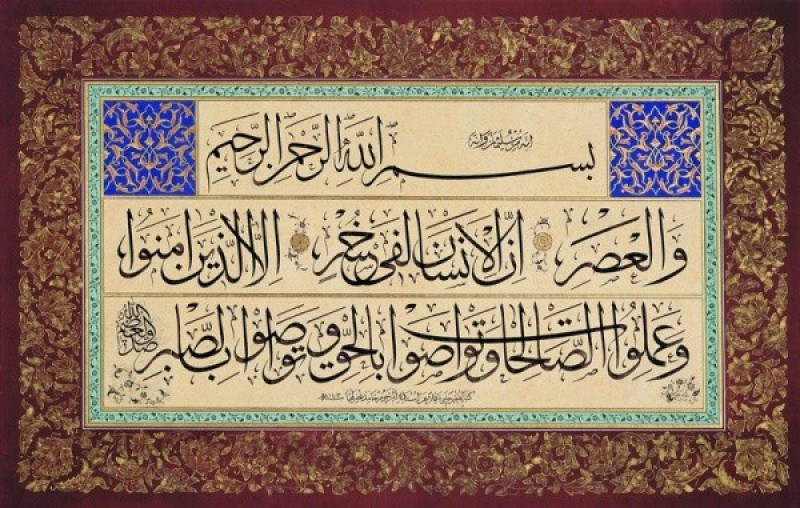 إنه من سليمان وإنه
بِسْمِ اللَّهِ الرَّحْمٰنِ الرَّحِيمِ
وَالْعَصْرِ اِنَّ الْاِنْسَانَ لَفِي خُسْرٍ اِلَّا الَّذِينَ اٰمَنُوا
وَعَمِلُوا الصَّالِحَاتِ وَتَوَاصَوْا بِالْحَقِّ وَتَوَاصَوْا بِالصَّبْرِ
صدق الله العظيم